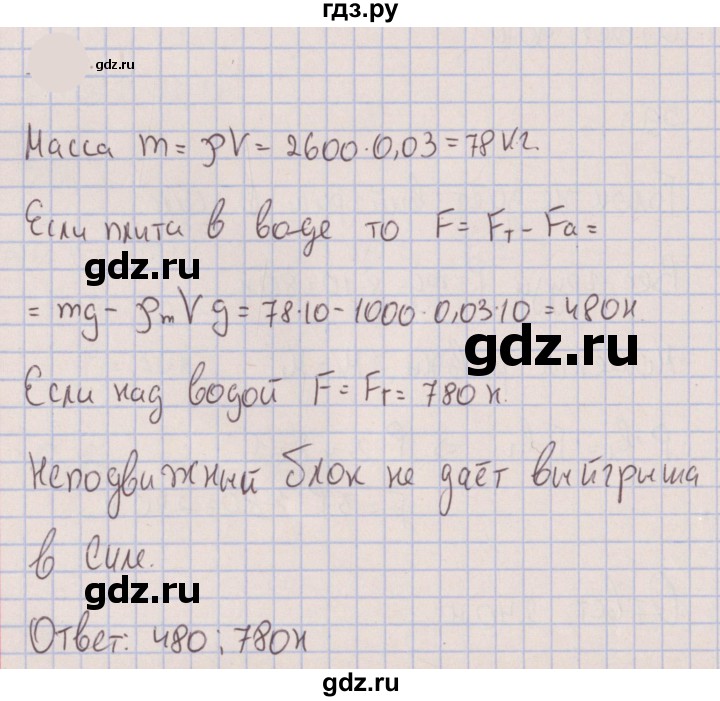 гдз.ру
gdz.ru
Масса m = ρV = 2600·0,03 = 78 кг.
Если плита в воде то F = Fт - Fа =
gdz.ru
= mg - ρmVg = 78·10 - 1000·0,03·10 = 480н
gdz.ru
Если над водой F = Fт = 780 н.
Неподвижный блок не даёт выйгриша
в силе.
gdz.ru
Ответ: 480; 780н
gdz.ru